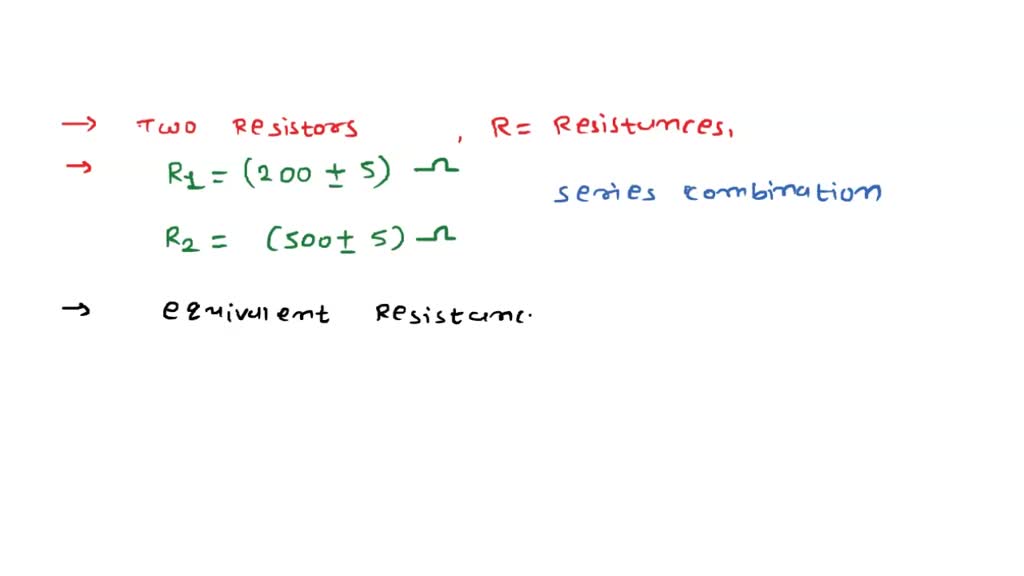 → Two Resistors , R = Resistances.
→ R1 = (200 ± 5) Ω
series combination
R2 = (500 ± 5) Ω
→ equivalent Resistanc